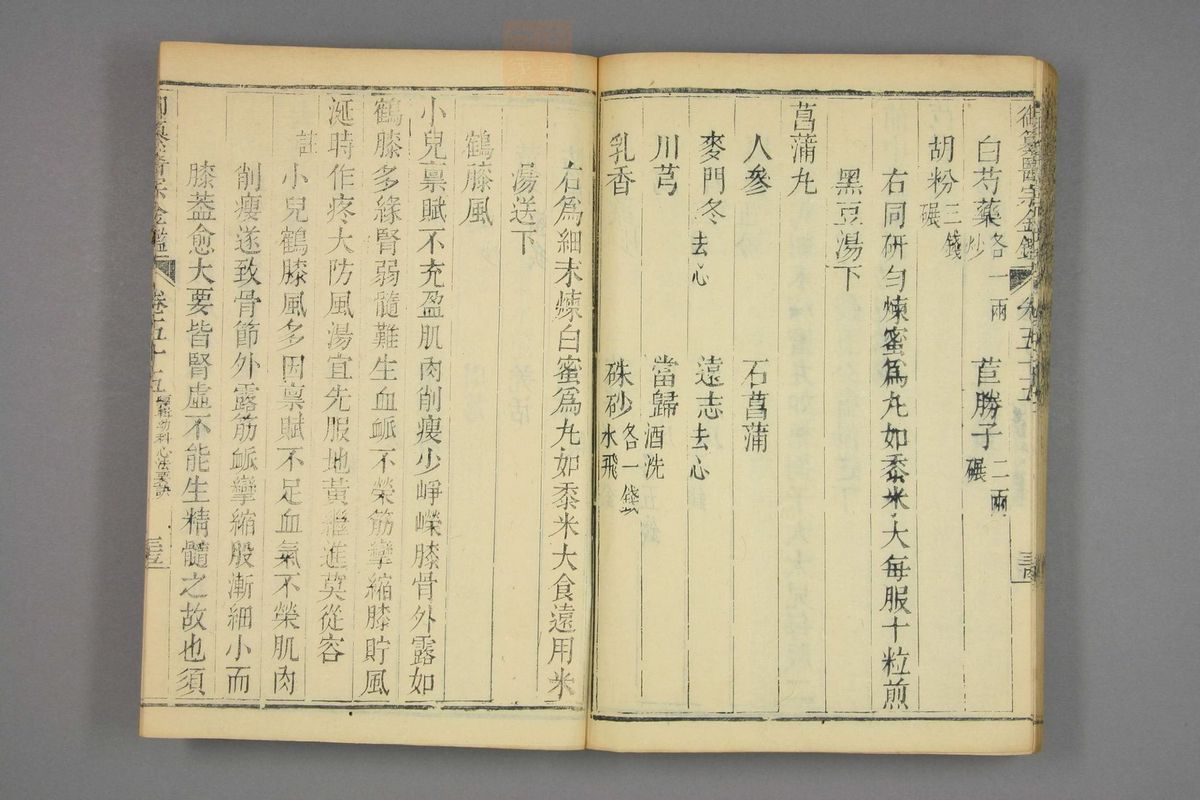 御纂醫宗金鑑
卷五十五
三古
白芍藥各一兩炒 苣勝子二兩碾
胡粉三錢碾
右同研勻煉蜜爲丸如黍米大每服十粒煎
黑豆湯下
菖蒲丸
人參 石菖蒲
麥門冬去心 遠志去心
川芎 當歸酒洗
乳香 硃砂各一錢水飛
右爲細末煉白蜜爲丸如黍米大食遠用米
湯送下
鶴藤風
小兒禀賦不充盈肌肉削瘦少崢嶸膝骨外露如
鶴膝多緣腎弱髓難生血脈不榮筋攣縮膝貯風
涎時作疼大防風湯宜先服地黃繼進莫從容
註 小兒鶴膝風多因禀賦不足血氣不榮肌肉
削瘦遂致骨節外露筋脈攣縮股漸細小而
膝蓋愈大要皆腎虛不能生精髓之故也須
纂醫宗金鑑
卷五十五
幼科心法要訣